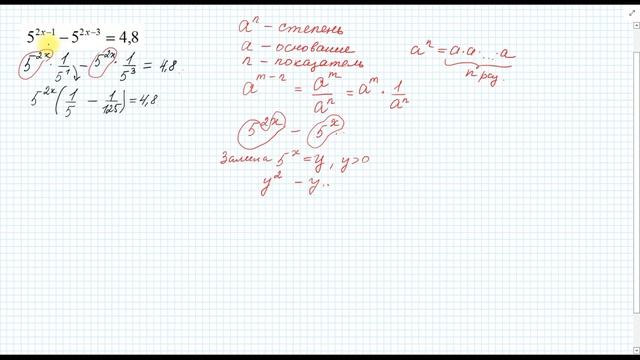 5^{2x-1} - 5^{2x-3} = 4,8
5^{2x} · 1/5^1 - 5^{2x} · 1/5^3 = 4,8
5^{2x} (1/5 - 1/125) = 4,8
a^n - степень
a - основание
n - показатель
a^n = a·a·...·a
n раз
a^{m-n} = a^m/a^n = a^m · 1/a^n
5^{2x} - 5^x ..
Замена 5^x = y, y>0
y^2 - y..